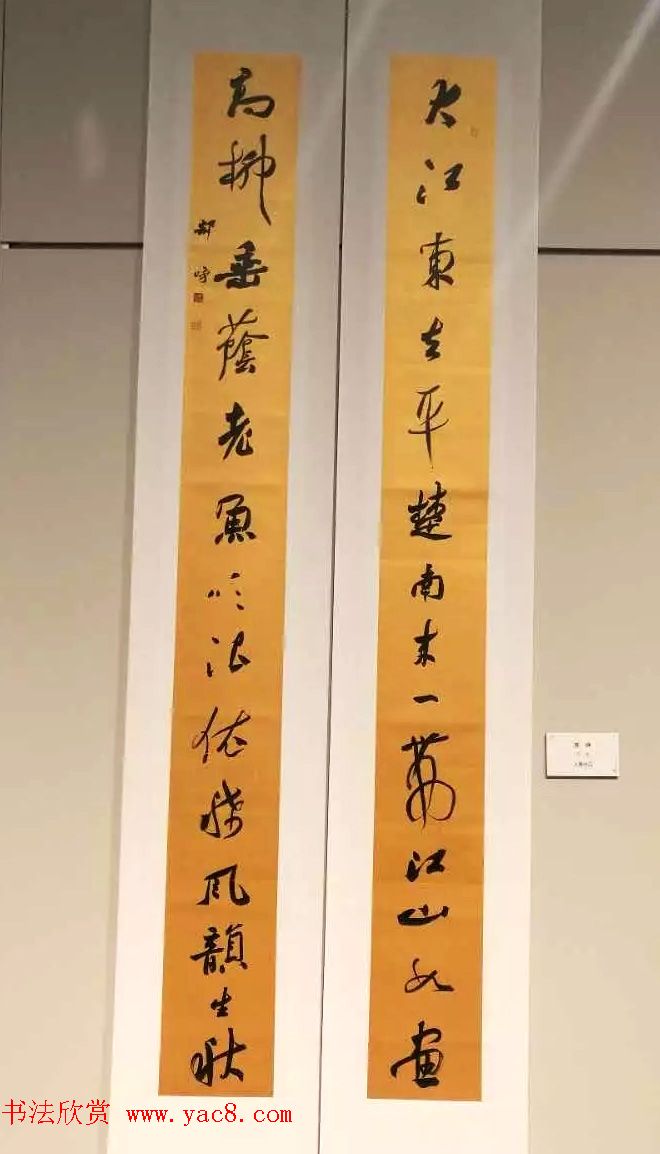 大江東去平楚南来一帶江山如画
高柳垂蔭老魚吹浪依稀風韻生秋
书法欣赏 www.yac8.com